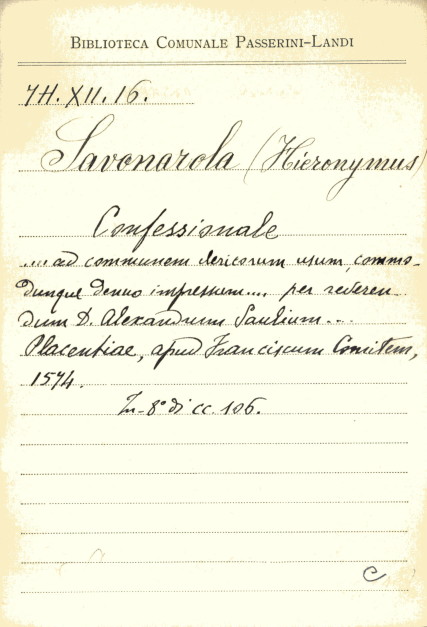 BIBLIOTECA COMUNALE PASSERINI-LANDI
7H. XII. 16.
Savonarola (Hieronymus)
Confessionale
.... ad communem clericorum usum, commo-
dumque denuo impressum.... per reveren
dum D. Alexandrum Saulium...
Placentiae, apud Franciscum Comitem,
1574.
In-8° di cc. 106.
C